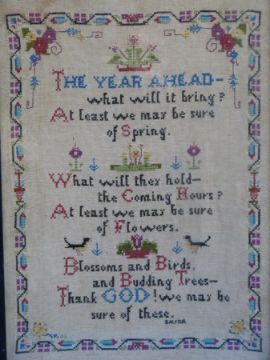 THE YEAR AHEAD—
what will it bring?
At least we may be sure
of Spring.
What will they hold—
the Coming Hours?
At least we may be sure
of Flowers.
Blossoms and Birds,
and Budding Trees—
Thank GOD! we may be
sure of these.